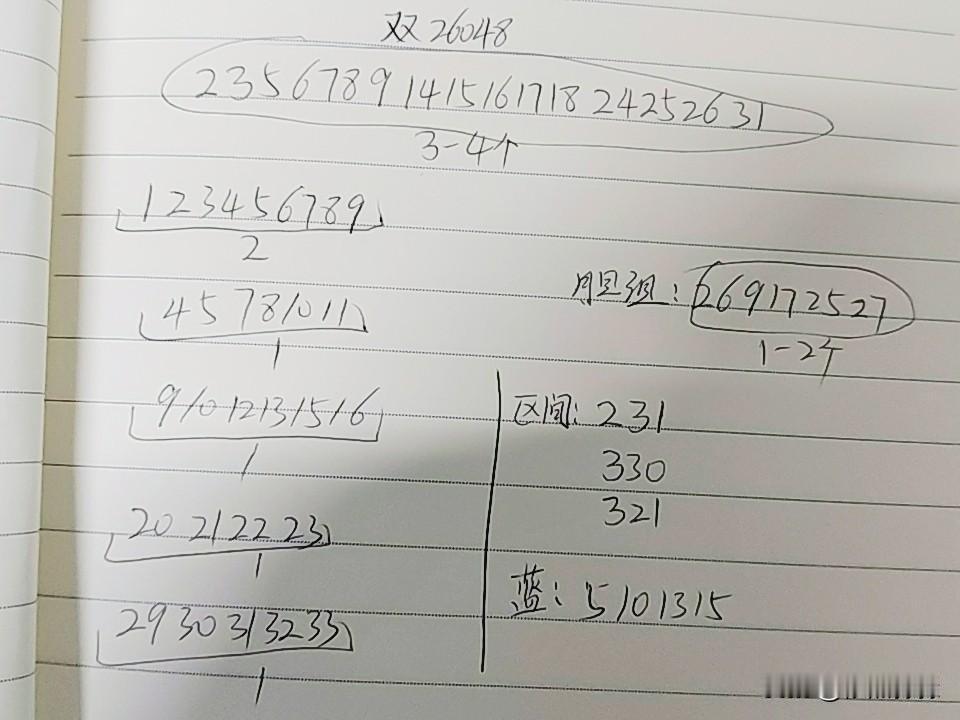 双 26048
2 3 5 6 7 8 9 14 15 16 17 18 24 25 26 31
3-4个
1 2 3 4 5 6 7 8 9
2
4 5 7 8 10 11
1
9 10 12 13 15 16
1
20 21 22 23
1
29 30 31 32 33
1
胆组: 2 6 9 17 25 27
1-2个
区间: 231
330
321
蓝: 5 10 13 15